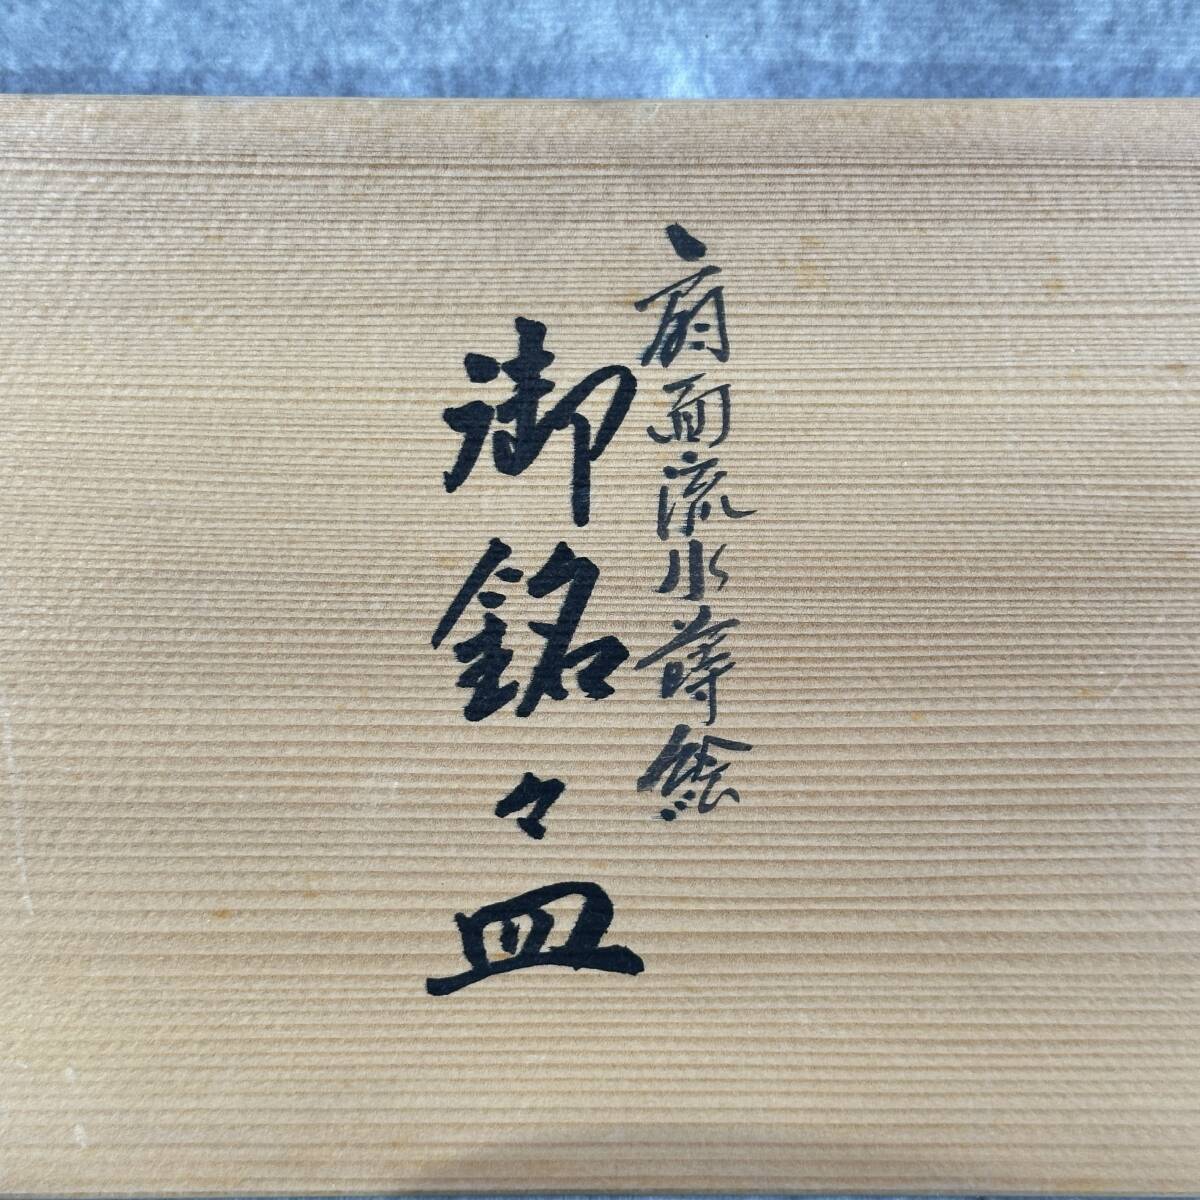 扇面流水蒔絵
御銘々皿